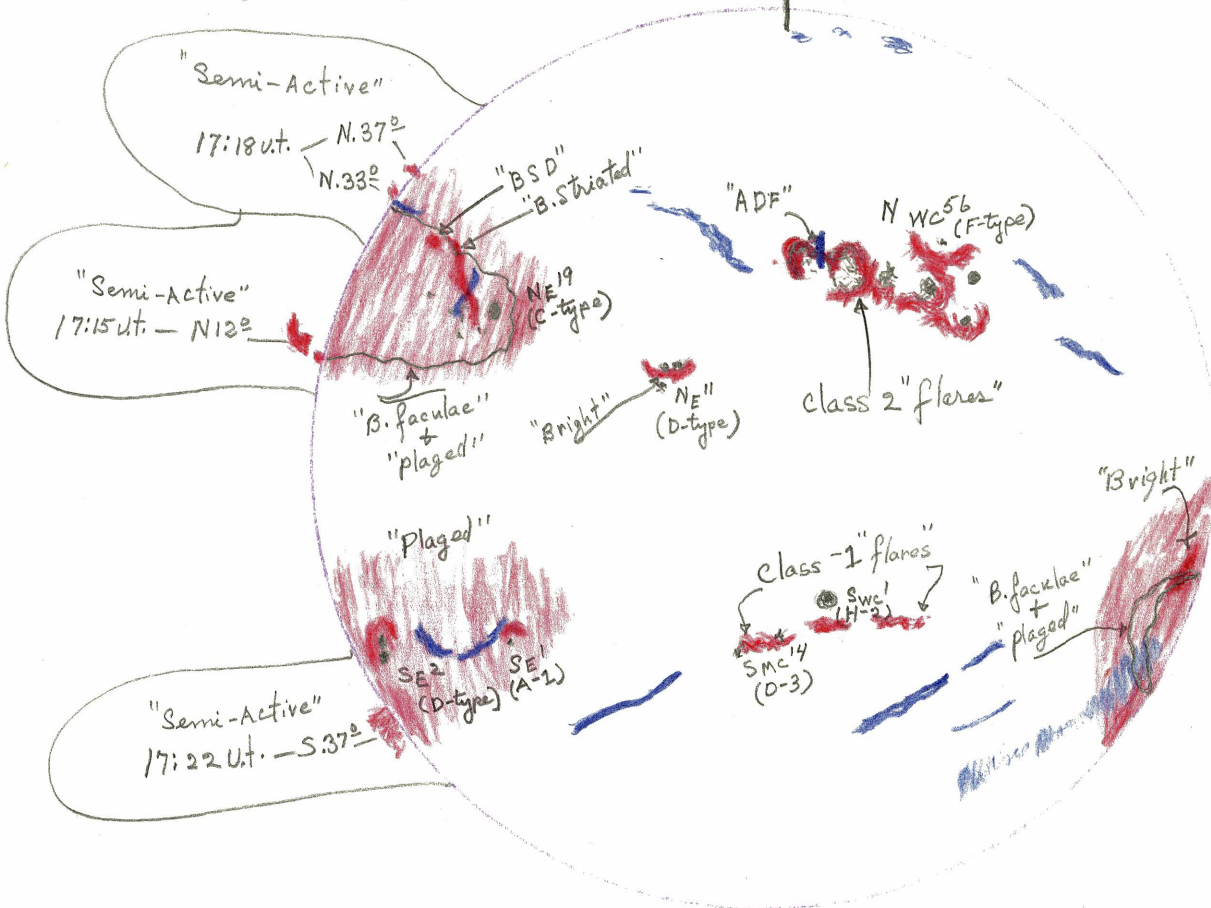 "Semi-Active"
17:18 u.t. — N.37°
N.33°
"BSD"
"B. Striated"
"ADF"
N WC 56
(F-type)
"Semi-Active"
17:15 U.t. — N12°
NE 19
(C-type)
"B. faculae"
+
"plaged"
"Bright"
NE 11
(D-type)
Class 2 "flares"
"Bright"
"Plaged"
Class -1 "flares"
"B. faculae"
+
"plaged"
SWC 1
(H-2)
SE 2
(D-type)
SE 1
(A-1)
SMC 14
(D-3)
"Semi-Active"
17:22 U.t. — S.37°